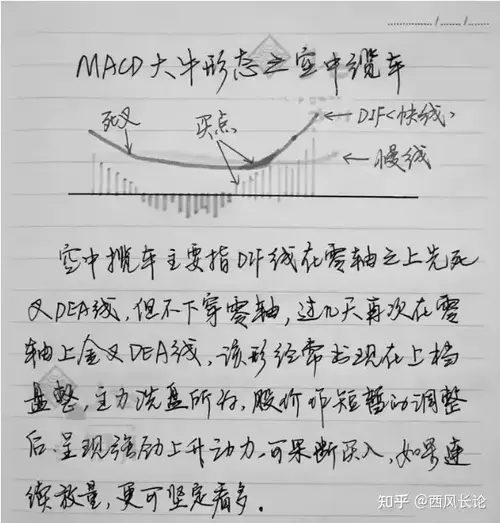 MACD大牛形态之空中缆车
死叉
买点
DIF(快线)
慢线
空中揽车主要指DIF线在零轴之上先死
叉DEA线,但不下穿零轴,过几天再次在零
轴上金叉DEA线,该形经常出现在上档
盘整,主力洗盘所为,股价作短暂的调整
后,呈现强劲上升动力,可果断买入,如果连
续放量,更可坚定看多。
知乎 @西风长论